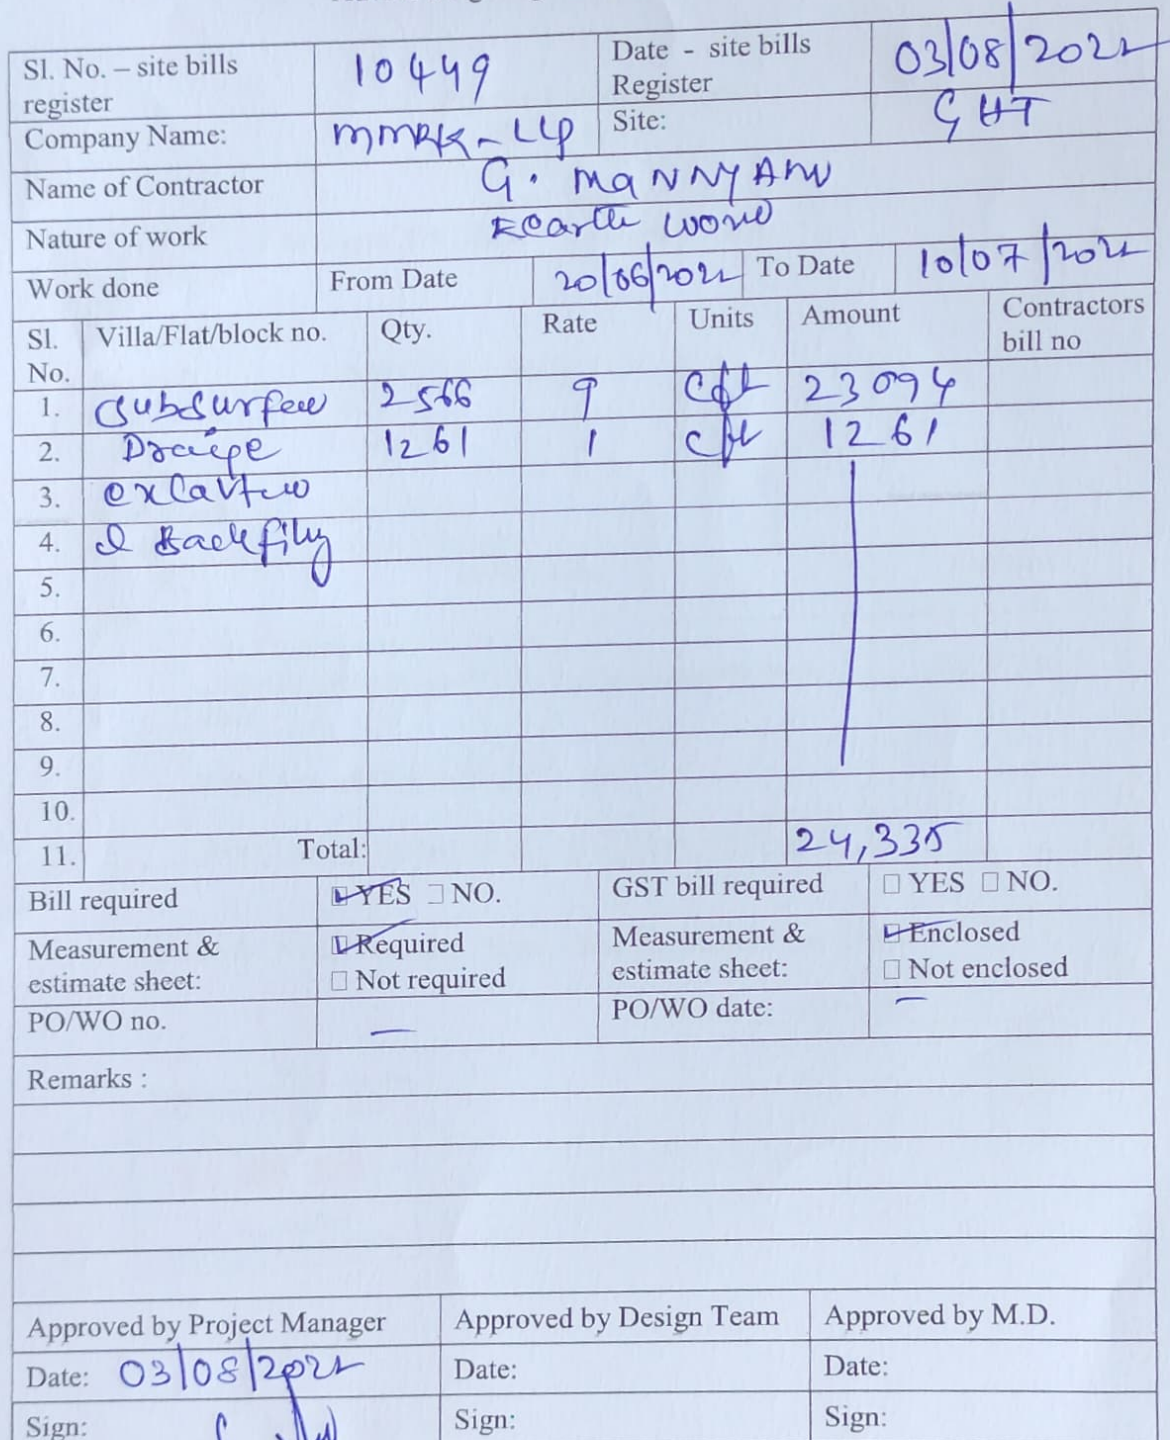 Sl. No. – site bills register 10449 Date - site bills Register 03/08/2022
Company Name: MMRK-LLP Site: GHT
Name of Contractor G. MANNYAM
Nature of work Earth work
Work done From Date 20/06/2022 To Date 10/07/2022
Sl. No. Villa/Flat/block no. Qty. Rate Units Amount Contractors bill no
1. subsurface 2566 9 cft 23094
2. 1261 1 cft 1261
3.
4. & Backfilg
5.
6.
7.
8.
9.
10.
11. Total: 24,335
Bill required YES NO. GST bill required YES NO.
Measurement & estimate sheet: Required Not required Measurement & estimate sheet: Enclosed Not enclosed
PO/WO no. — PO/WO date: —
Remarks :
Approved by Project Manager Approved by Design Team Approved by M.D.
Date: 03/08/2022 Date: Date:
Sign: Sign: Sign: